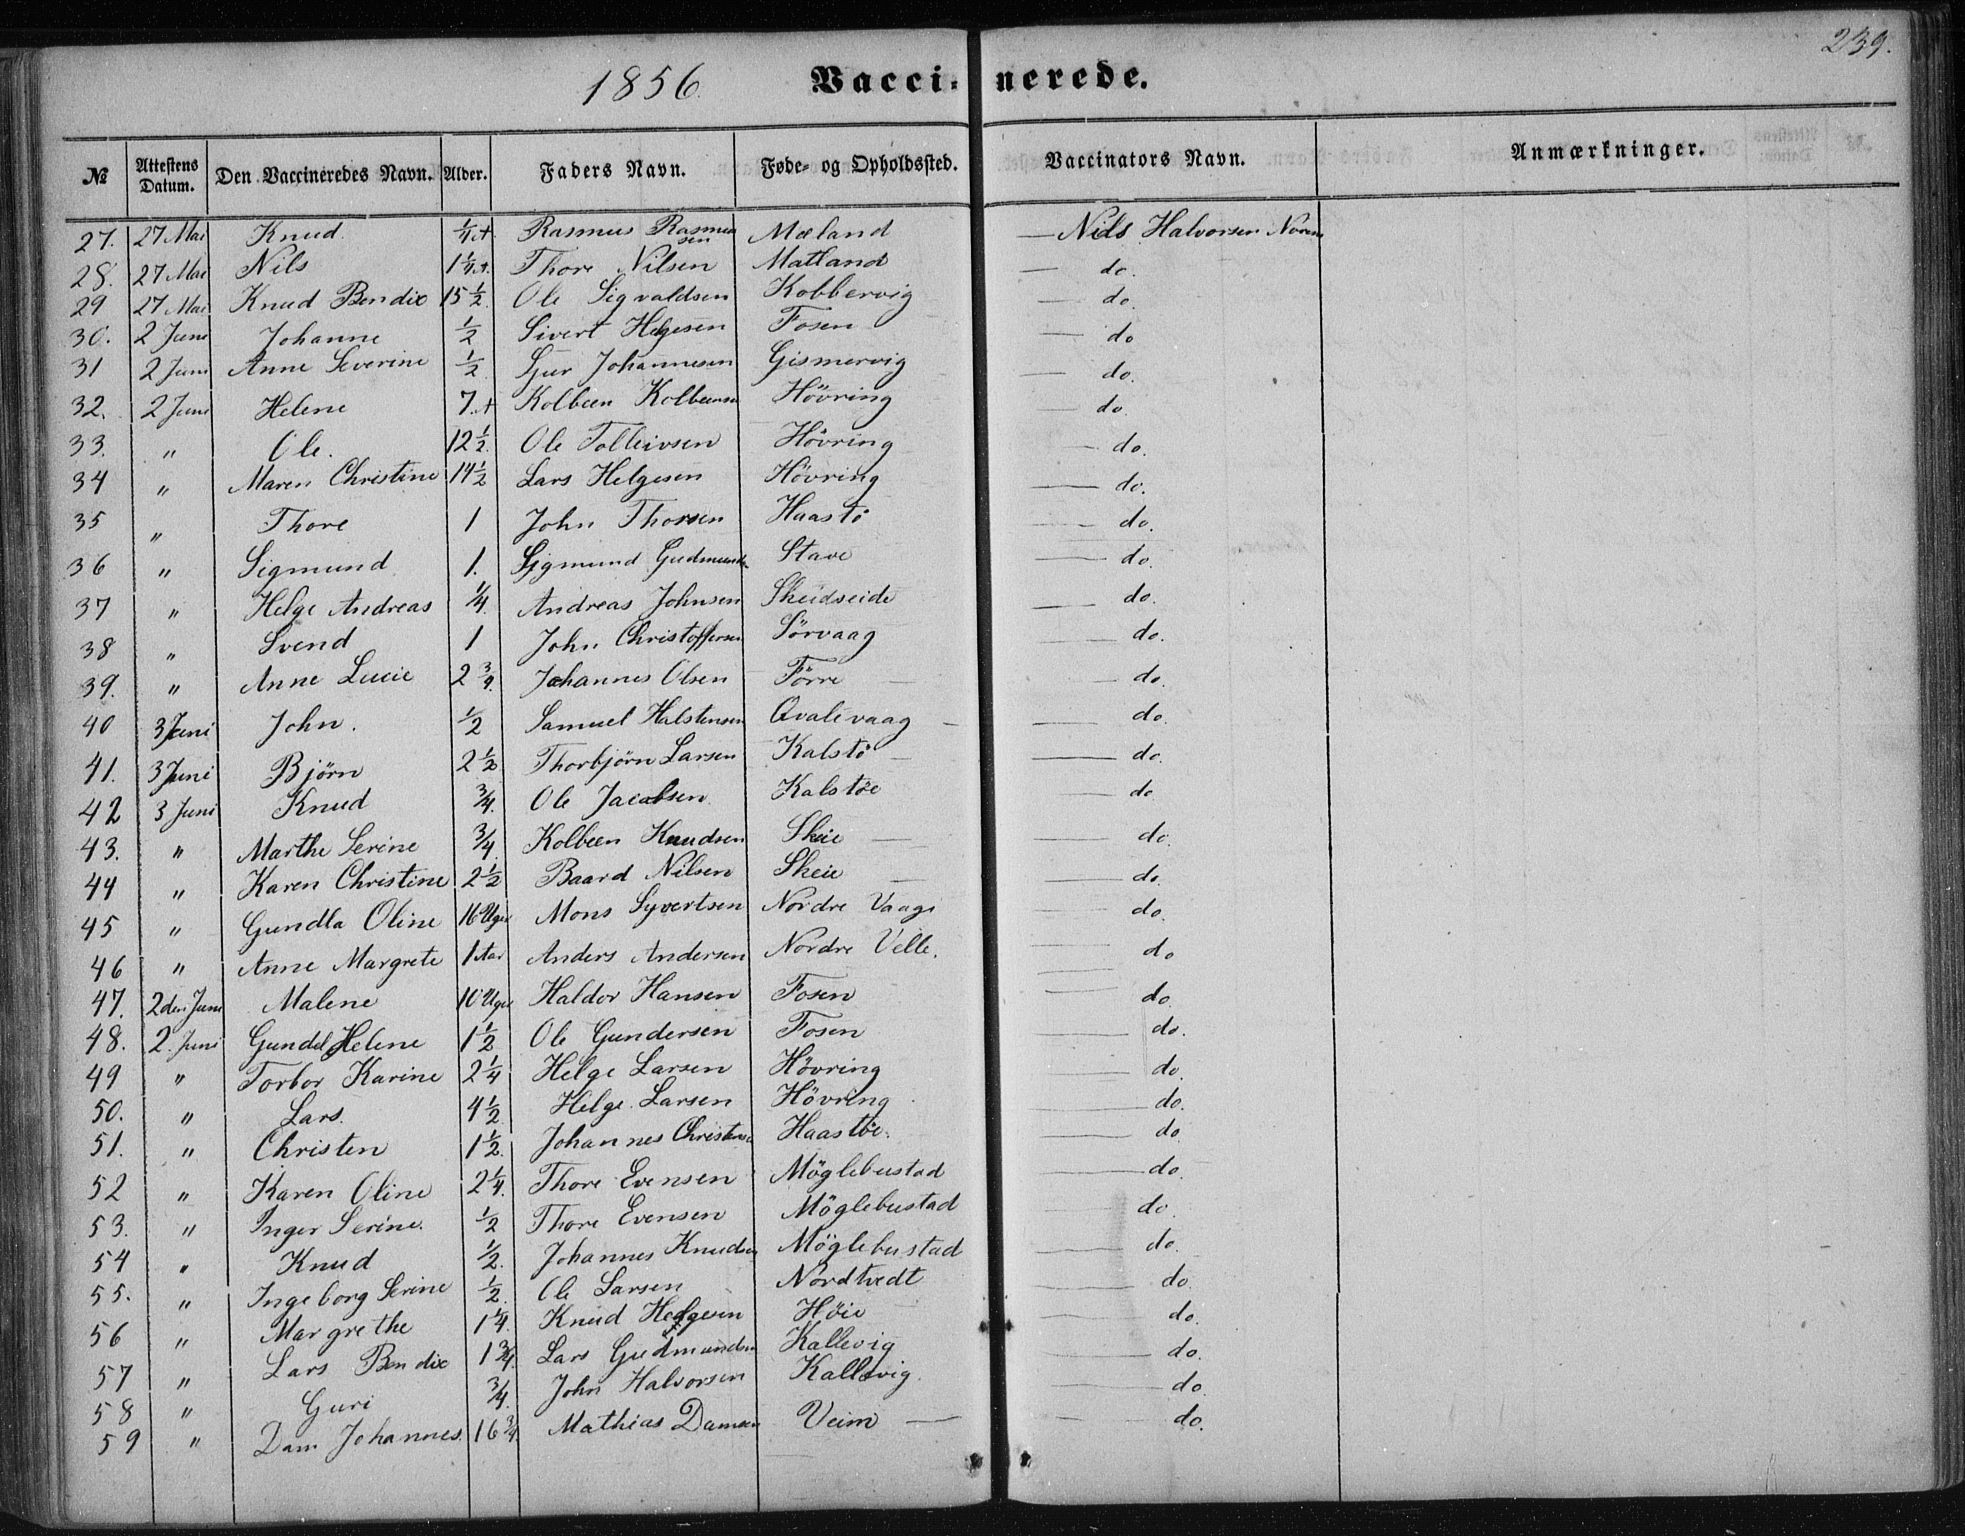 239.
1856. Vaccinerede.
№ Attestens Datum. Den Vaccineredes Navn. Alder. Faders Navn. Føde- og Opholdssted. Vaccinators Navn. Anmærkninger.
27. 27 Mai Knud 1/4 A Rasmus Rasmussen Mæland — Nils Halvorsen
28. 27 Mai Nils 1 1/4 A. Thore Nilsen Matland — do.
29 27 Mai Knud Bendix 15 1/2. Ole Sigvaldsen Kobbervig — do.
30. 2 Juni Johanne 1/2 Sivert Helgesen Fosen — do
31 2 Juni Anne Severine 1/2. Johannesen Gismervig — do.
32. 2 Juni Helene 7. A Kolbeen Kolbeensen Hövring — do.
33. " Ole. 12 1/2. Ole Tolleivsen Hövring — do.
34 " Maren Christine 14 1/2 Lars Helgesen Hövring — do.
35 " Thore 1 John Thorsen Haastö — do.
36 " Sigmund 1. Sigmund Gudmunds Stave — do.
37 " Helge Andreas 1/4. Andreas Johnsen Skeidseide — do.
38 " Svend 1 John Christoffersen Sörvaag — do.
39. " Anne Lucie 2 3/4. Johannes Olsen Förre — do.
40 3 Juni John. 1/2 Samuel Halstensen Qvalevaag — do.
41. 3 Juni Björn 2 1/2 Thorbjörn Larsen Kalstö — do.
42 3 Juni Knud 3/4. Ole Jacobsen Kalstöe — do
43. " Marthe Serine 3/4. Kolbeen Knudsen Skeie — do.
44 " Karen Christine 2 1/2 Baard Nilsen Skeie — do.
45 " Gundla Oline 16 Uger Mons Syvertsen Nordre Vaage — do.
46 " Anne Margrete 1 Aar Anders Andersen Nordre Velle. — do
47. 2den Juni Malene 10 Uger Haldor Hansen Fosen — do
48. 2. Juni Gundel Helene 1 1/2 Ole Gundersen Fosen — do.
49 " Torbor Karine 2 1/4 Helge Larsen Hövring — do.
50. " Lars. 4 1/2 Helge Larsen Hövring — do.
51. " Christen 1 1/2. Johannes Christens Haastöe. — do
52 " Karen Oline 2 1/4. Thore Evensen Möglebustad — do.
53. " Inger Serine. 1/2 Thore Evensen Möglebustad — do.
54 " Knud 1/2. Johannes Knudsen Möglebustad — do.
55. " Ingeborg Serine 1/2. Ole Larsen Nordtvedt — do.
56 " Margrethe 1 1/4. Knud Helgesen Höie — do.
57 " Lars Bendix 1 3/4. Lars Gudmundsen Kallevig — do.
58 " Guri 3/4. John Halvorsen Kallevig. — do.
59 " Dam Johannes. 16 3/4. Mathias Damsen Veim — do.